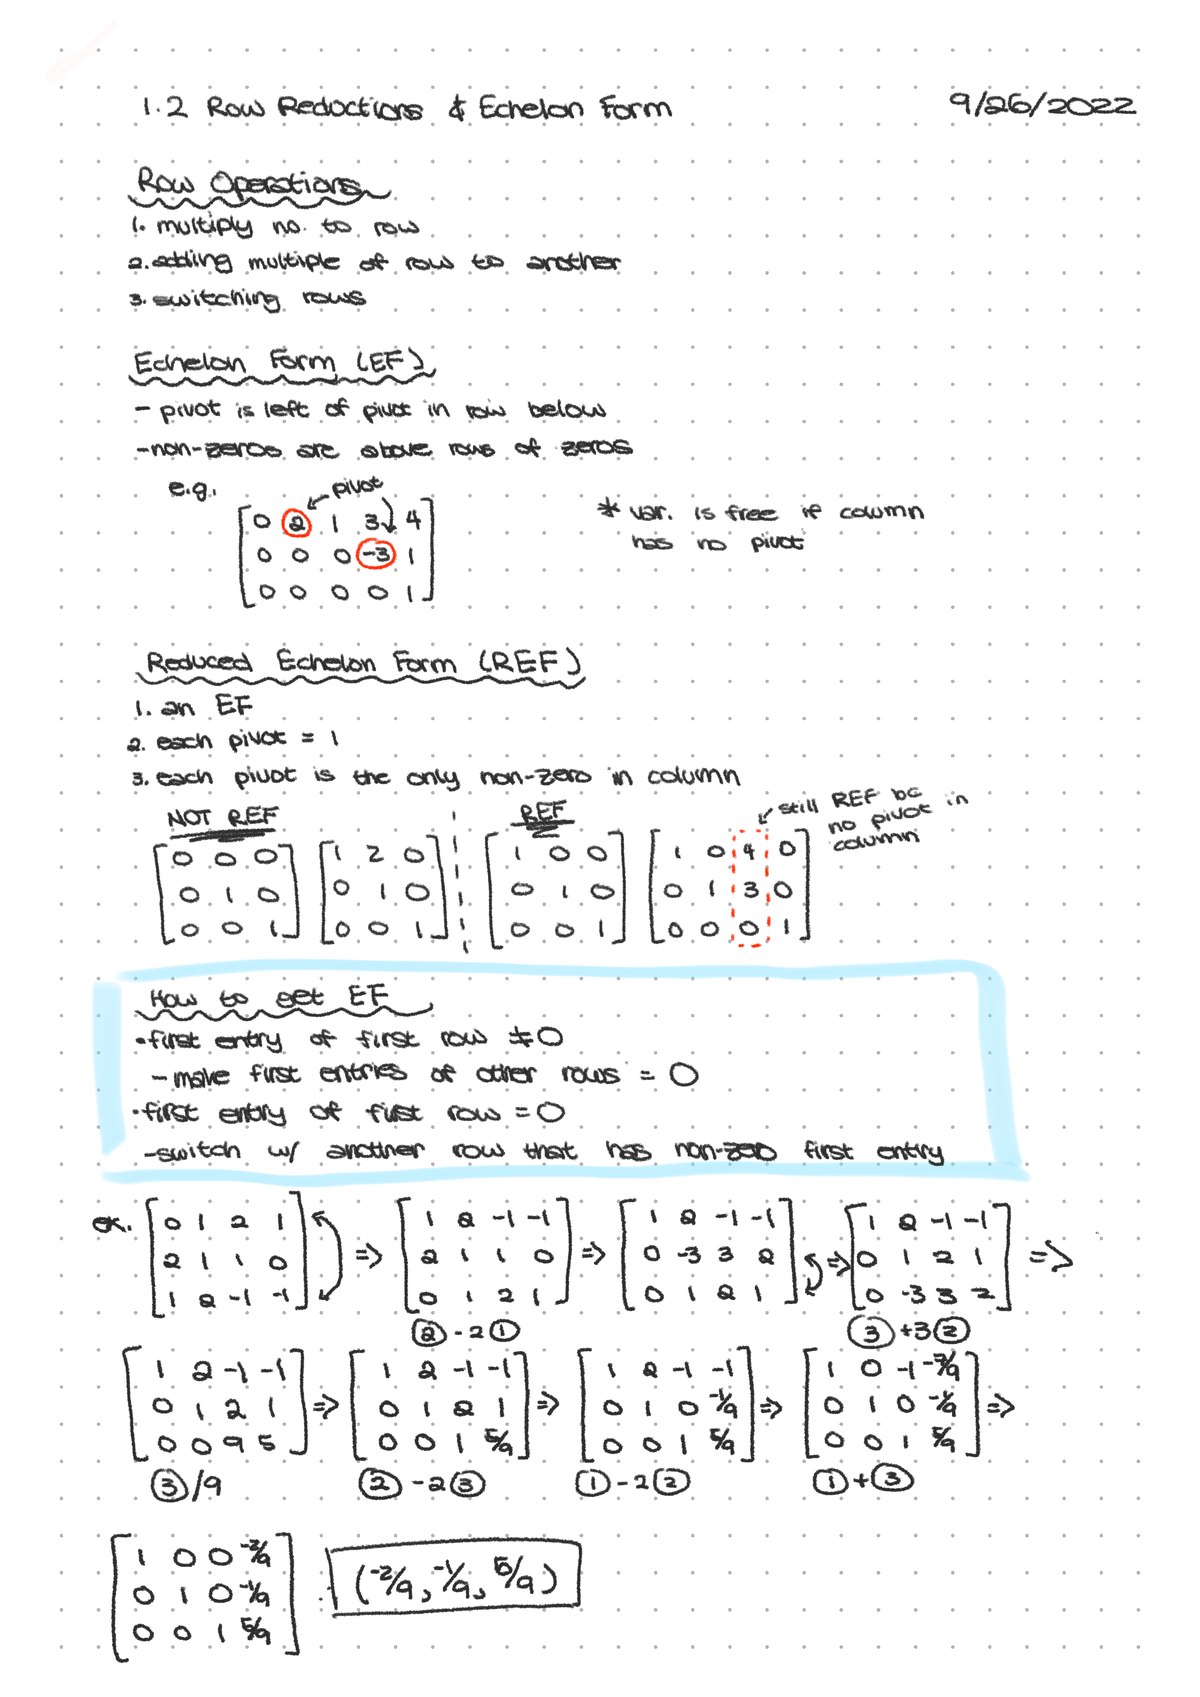 1.2 Row Reductions & Echelon Form 9/26/2022
Row Operations
1. multiply no. to row
2. adding multiple of row to another
3. switching rows
Echelon Form (EF)
- pivot is left of pivot in row below
- non-zeros are above rows of zeros
e.g.
pivot
0 2 1 3 4
0 0 0 -3 1
0 0 0 0 1
* var. is free if column
has no pivot
Reduced Echelon Form (REF)
1. an EF
2. each pivot = 1
3. each pivot is the only non-zero in column
NOT REF
0 0 0
0 1 0
0 0 1
1 2 0
0 1 0
0 0 1
REF
1 0 0
0 1 0
0 0 1
1 0 4 0
0 1 3 0
0 0 0 1
still REF bc
no pivot in
column
How to get EF
• first entry of first row ≠ 0
- make first entries of other rows = 0
• first entry of first row = 0
- switch w/ another row that has non-zero first entry
ex.
0 1 2 1
2 1 1 0
1 2 -1 -1
=>
1 2 -1 -1
2 1 1 0
0 1 2 1
② - 2①
=>
1 2 -1 -1
0 -3 3 2
0 1 2 1
=>
1 2 -1 -1
0 1 2 1
0 -3 3 2
③ + 3②
=>
1 2 -1 -1
0 1 2 1
0 0 9 5
③/9
=>
1 2 -1 -1
0 1 2 1
0 0 1 5/9
② - 2③
=>
1 2 -1 -1
0 1 0 -1/9
0 0 1 5/9
① - 2②
=>
1 0 -1 -7/9
0 1 0 -1/9
0 0 1 5/9
① + ③
=>
1 0 0 -2/9
0 1 0 -1/9
0 0 1 5/9
(-2/9, -1/9, 5/9)